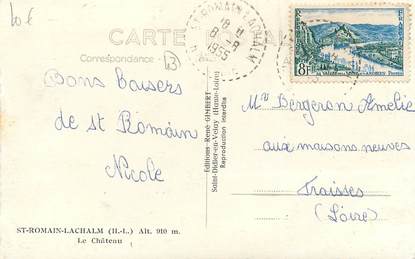 10€
CARTE
Correspondance
13
ST-ROMAIN-LACHALM
18 H
8 - 8
1955
8F
LA VALLÉE DE LA SEINE AUX ANDELYS
Bons baisers
de St Romain
Nicole
Editions René GIMBERT
Saint-Didier-en-Velay (Haute-Loire)
Reproduction interdite
Bergeron Amélie
aux maisons neuves
Fraisses
(Loire)
ST-ROMAIN-LACHALM (H.-L.) Alt. 910 m.
Le Château